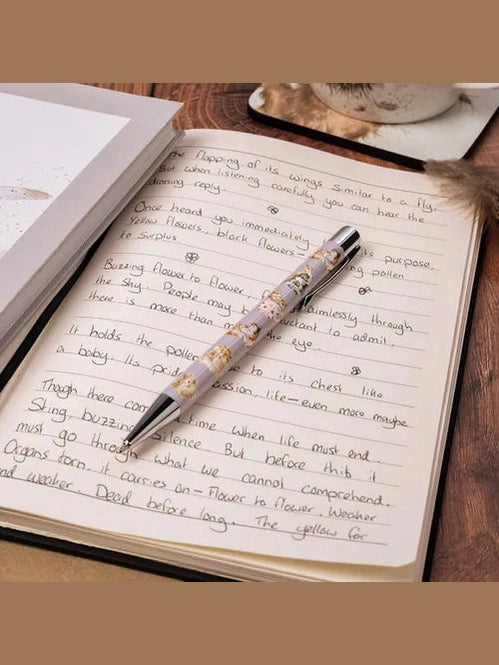 The flapping of its wings similar to a fly,
But when listening carefully you can hear the
droning reply.
Once heard you immediately its purpose,
Yellow flowers, black flowers- ing pollen
to surplus
Buzzing flower to flower, aimlessly through
the sky. People may reluctant to admit,
there is more than m the eye.
It holds the pollen to its chest like
a baby. Its pride passion, life-even more maybe
Though there come time when life must end.
Sting, buzzing Silence But before this it
must go through what we cannot comprehend.
Organs torn, it carries on- Flower to flower. Weaker
and weaker. Dead before long. The yellow for